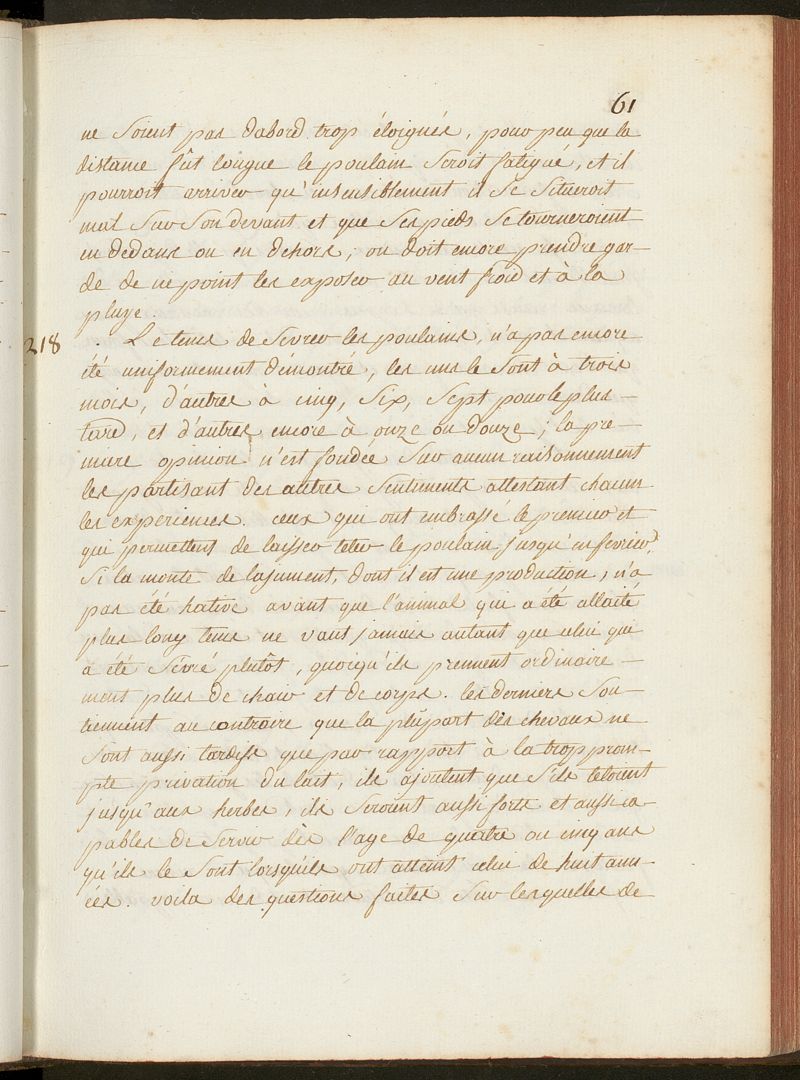 61
ne soient pas dabord trop éloignés, pour peu que la
distance fût longue le poulain seroit fatigué, et il
pourroit arriver qu'insensiblement il se situeroit
mal sur son devant et que ses pieds se tourneroient
en dedans ou en dehors; on doit encore prendre gar-
de de ne point les exposer au vent froid et à la
pluye.
218
. Le tems de sevrer les poulains, n'a pas encore
été uniformement démontré, les uns le sont à trois
mois, d'autres à cinq, six, sept pour le plus
tard, et d'autres encore à onze ou douze; la pre-
miere opinion n'est fondée sur aucun raisonnement
les partisant des autres sentiments attestant chacun
les experiences. ceux qui ont embrassé le premier et
qui permettent de laisser teter le poulain jusqu'en fevrier,
si la monte de la jument, dont il est une production, n'a
pas été hative avant que l'animal qui a été allaité
plus long tems ne vaut jamais autant que celui qui
a été sévré plutôt, quoiqu'ils prennent ordinaire-
ment plus de chair et de corps. les derniers sou-
tiennent au contraire que la plûpart des chevaux ne
sont aussi tardifs que par rapport à la trop prom-
pte privation du lait, ils ajoutent que s'ils tetoient
jusqu'aux herbes, ils seroient aussi forts et aussi ca-
pables de servir dès l'age de quatre ou cinq ans
qu'ils le sont lorsqu'ils ont atteint celui de huit ann-
ées. voila des questions faites sur lesquelles de